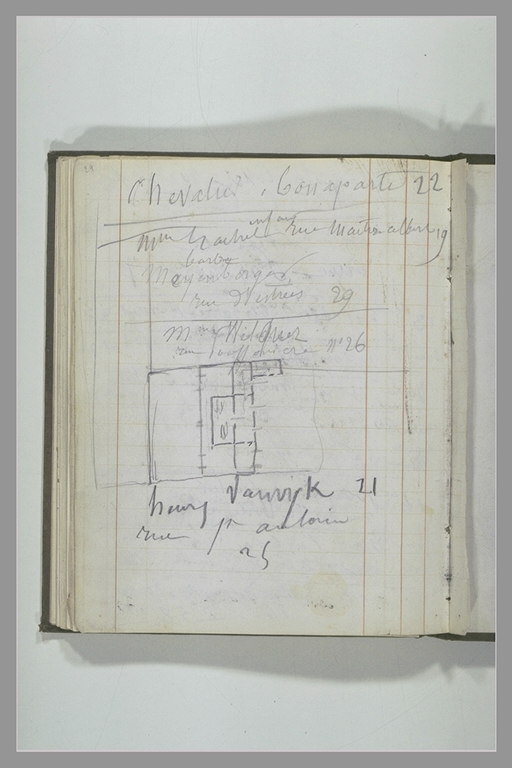 Chevalier, bonaparte 22
enfant
Mme Rachel rue Maître albert 19
barbe
rue d'Estrées 29
Mme
rue n° 26
henry Vanwyk 21
rue St antoine
25